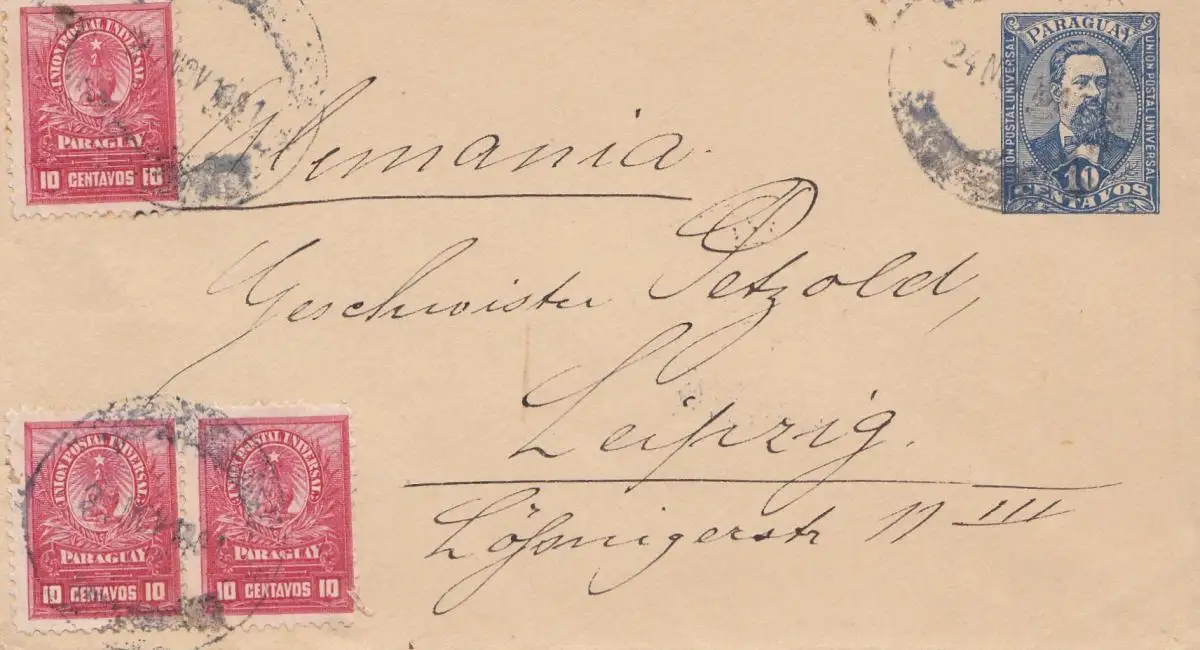 UNION POSTAL UNIVERSAL
PARAGUAY
10 CENTAVOS 10
NOV
PARAGUAY
UNION POSTAL UNIVERSAL
UNION POSTAL UNIVERSAL
10
CENTAVOS
24
Alemania.
Geschwister Petzold,
Leipzig.
Lößnigerstr 11 III
UNION POSTAL UNIVERSAL
PARAGUAY
10 CENTAVOS 10
UNION POSTAL UNIVERSAL
PARAGUAY
10 CENTAVOS 10